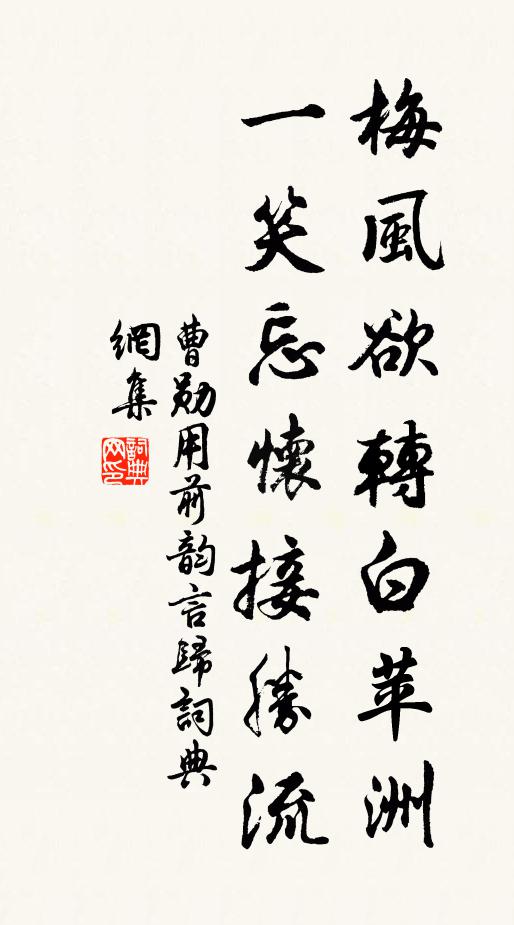 梅風欲轉白苹洲
一笑忘懷接勝流
曹勛用前韵言歸詞典
網集
詞典